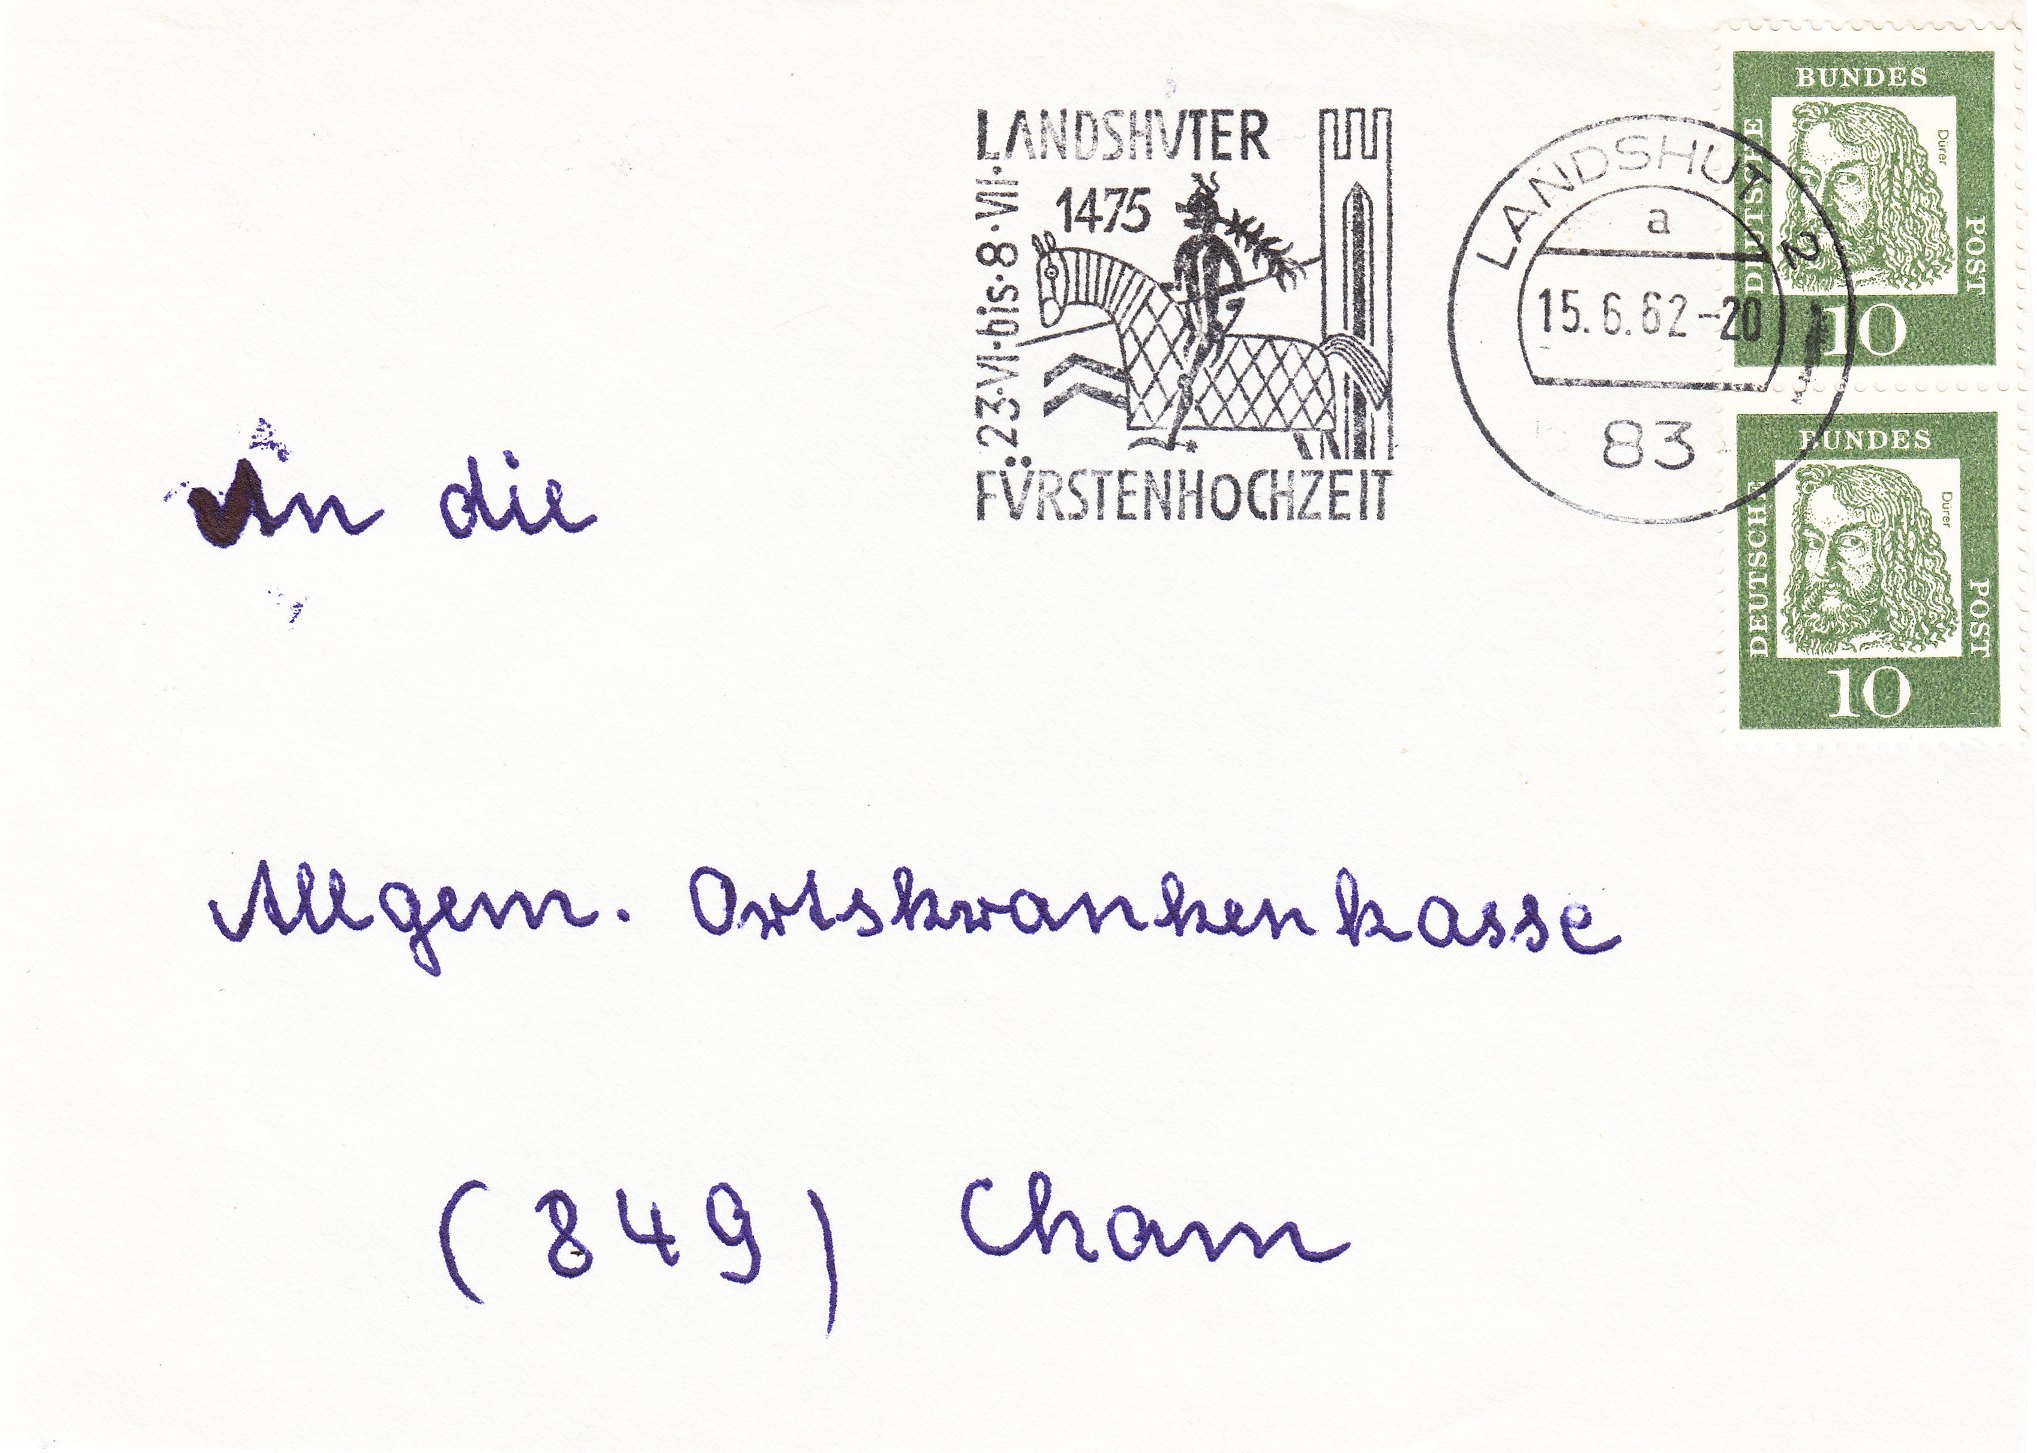 LANDSHVTER
1475
23·VI·bis·8·VII·
FÜRSTENHOCHZEIT
LANDSHUT 2
a
15.6.62-20
83
BUNDES
DEUTSCHE
POST
Dürer
10
BUNDES
DEUTSCHE
POST
Dürer
10
An die
Allgem. Ortskrankenkasse
(849) Cham